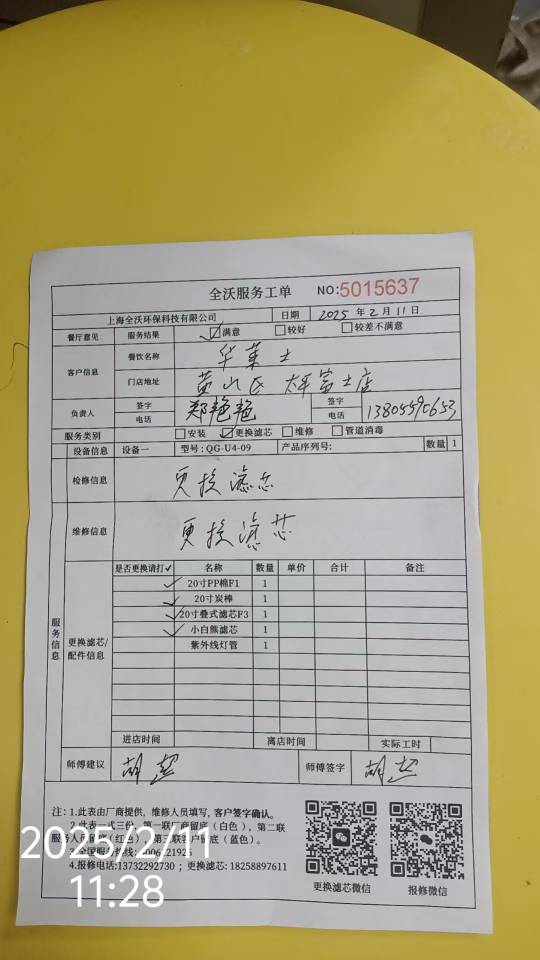 全沃服务工单 NO:5015637
上海全沃环保科技有限公司 日期 2025 年 2 月 11 日
餐厅意见 服务结果 ☑满意 □较好 □较差不满意
客户信息 餐饮名称 华莱士
门店地址 黄山区 太平富士店
负责人 签字 郑艳艳 签字
电话 电话 13805590653
服务类别 □安装 ☑更换滤芯 □维修 □管道消毒
设备信息 设备一 型号:QG-U4-09 产品序列号: 数量 1
检修信息 更换滤芯
维修信息 更换滤芯
服务信息
更换滤芯/配件信息
是否更换请打✓ 名称 数量 单价 合计 备注
✓ 20寸PP棉F1 1
✓ 20寸炭棒 1
✓ 20寸叠式滤芯F3 1
✓ 小白熊滤芯 1
紫外线灯管 1
进店时间 离店时间 实际工时
师傅建议 胡超 师傅签字 胡超
注: 1.此表由厂商提供, 维修人员填写, 客户签字确认。
2.此表一式三份, 第一联厂商留底(白色), 第二联
服务人员留底(红色), 第三联客户留底(蓝色)。
3.全国服务热线: 21925
4.报修电话:13732292730 ; 更换滤芯: 18258897611
更换滤芯微信 报修微信
2025/2/11
11:28